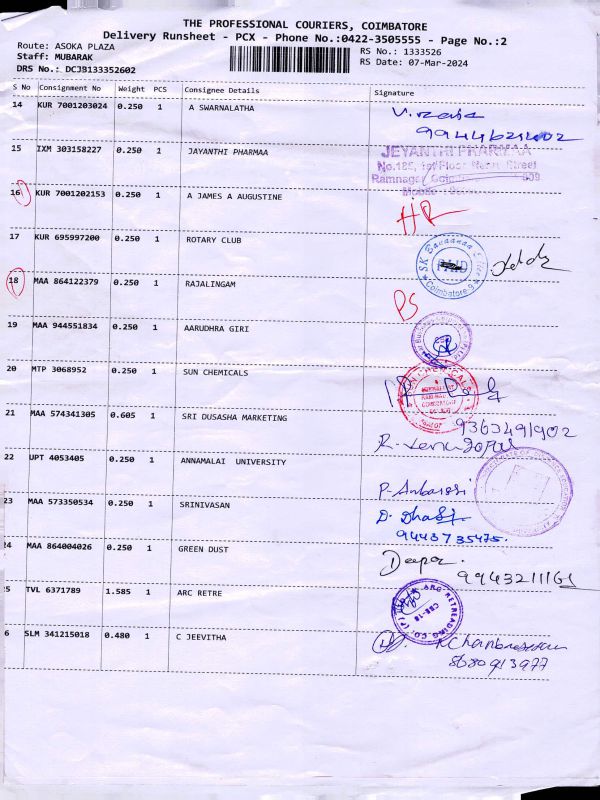 THE PROFESSIONAL COURIERS, COIMBATORE
Delivery Runsheet - PCX - Phone No.:0422-3505555 - Page No.:2
Route: ASOKA PLAZA
Staff: MUBARAK
DRS No.: DCJB133352602
RS No.: 1333526
RS Date: 07-Mar-2024
S No Consignment No Weight PCS Consignee Details Signature
14 KUR 7001203024 0.250 1 A SWARNALATHA
15 IXM 303158227 0.250 1 JAYANTHI PHARMAA
JEYANTHI PHARMAA
16 KUR 7001202153 0.250 1 A JAMES A AUGUSTINE
17 KUR 695997200 0.250 1 ROTARY CLUB
PAID
Coimbatore-9
18 MAA 864122379 0.250 1 RAJALINGAM
PS
19 MAA 944551834 0.250 1 AARUDHRA GIRI
20 MTP 3068952 0.250 1 SUN CHEMICALS
21 MAA 574341305 0.605 1 SRI DUSASHA MARKETING
9363491902
22 UPT 4053405 0.250 1 ANNAMALAI UNIVERSITY
P. Anbarasi
23 MAA 573350534 0.250 1 SRINIVASAN
9443735475.
24 MAA 864004026 0.250 1 GREEN DUST
Deepa
5 TVL 6371789 1.585 1 ARC RETRE
6 SLM 341215018 0.480 1 C JEEVITHA
8680913977